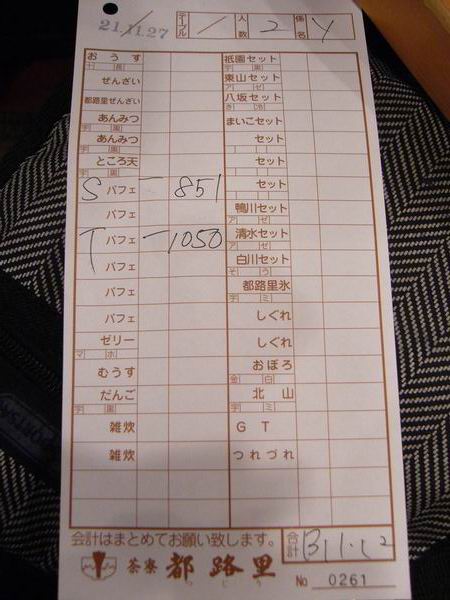 21.11.27 テーブル / 人数 2 係名 Y
おうす 祇園セット
ぜんざい 東山セット
都路里ぜんざい 八坂セット
あんみつ まいこセット
あんみつ セット
ところ天 セット
S パフェ 一 851 セット
パフェ 鴨川セット
T パフェ 一 1050 清水セット
パフェ 白川セット
パフェ 都路里氷
パフェ しぐれ
ゼリー しぐれ
むうす おぼろ
だんご 北山
雑炊 G T
雑炊 つれづれ
会計はまとめてお願い致します。 合計
茶寮 都路里 No 0261